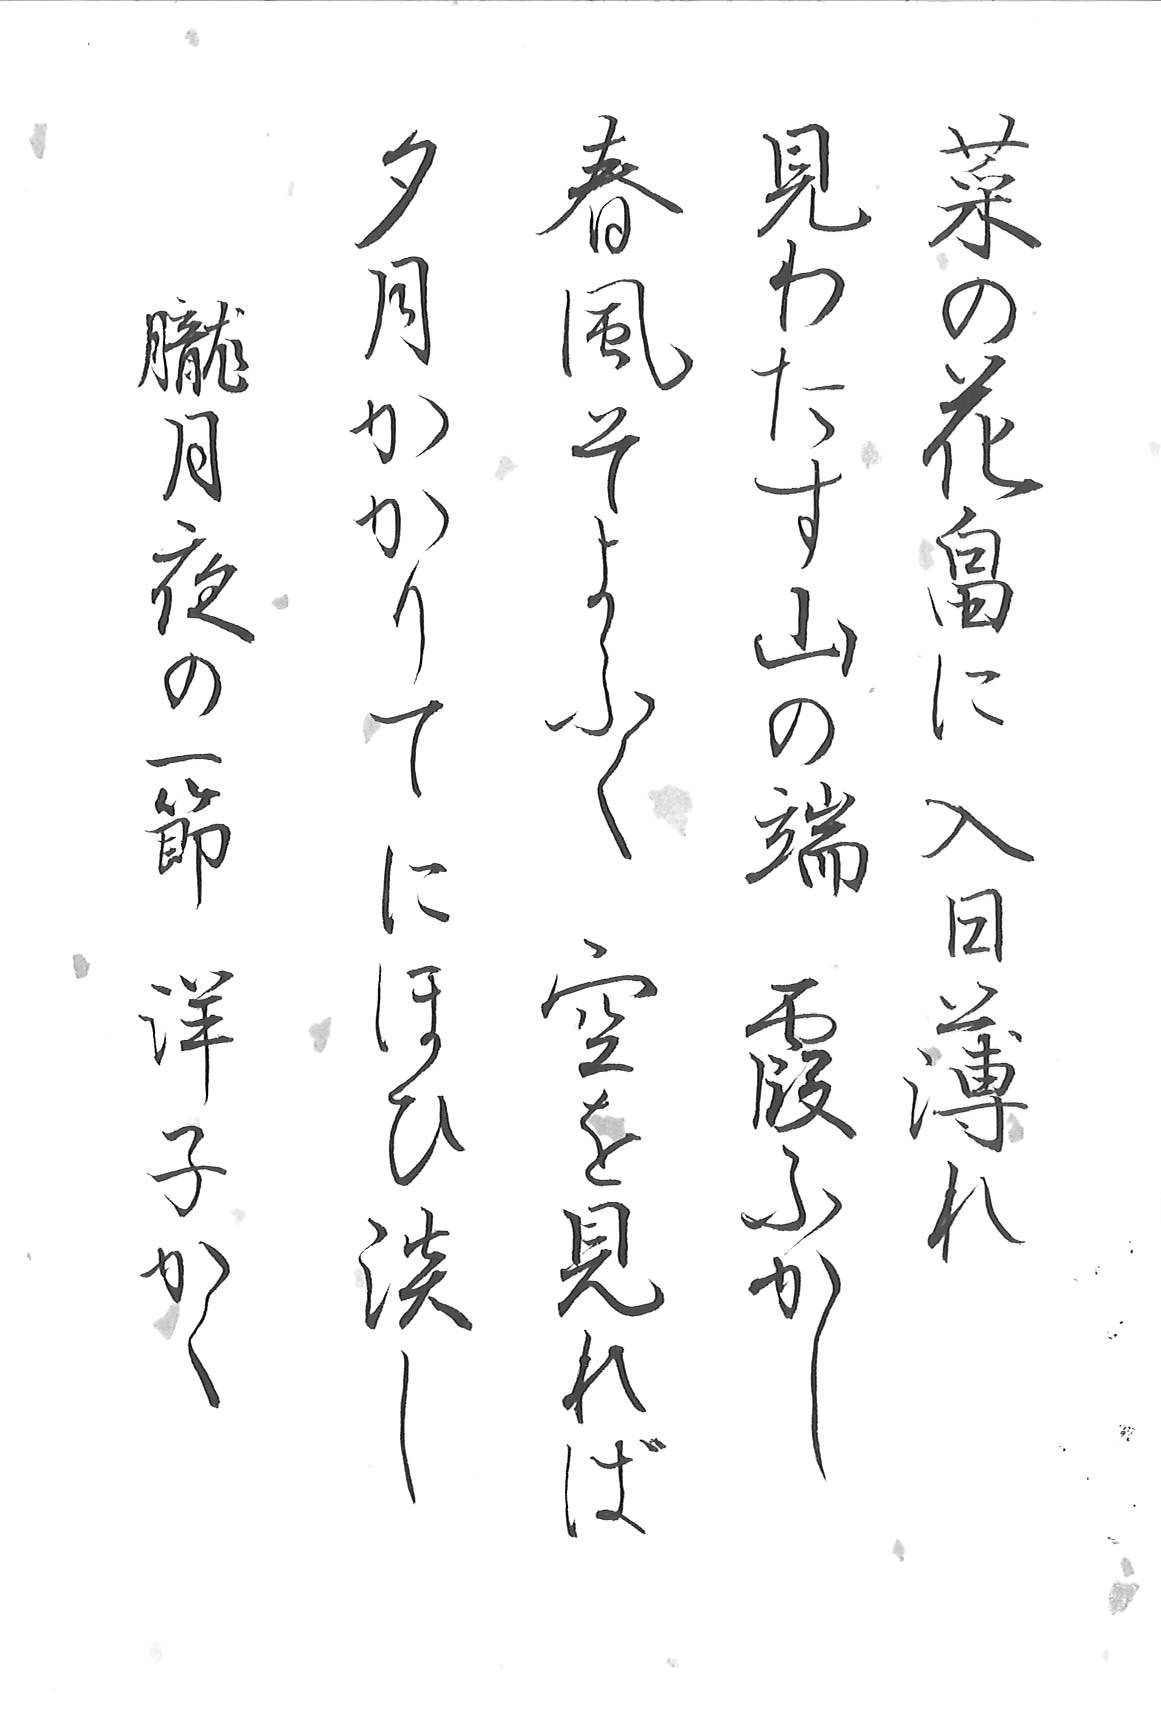 菜の花畠に 入日薄れ
見わたす山の端 霞ふかし
春風そよふく 空を見れば
夕月かかりて にほひ淡し
朧月夜の一節 洋子かく